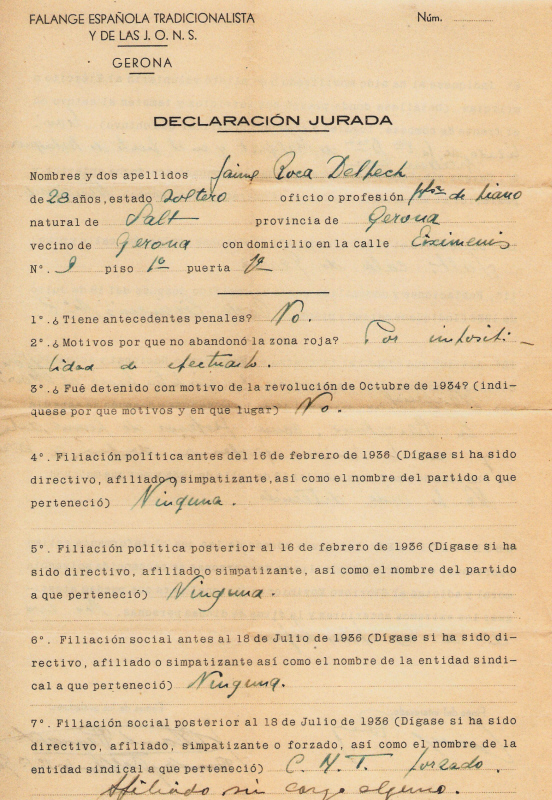 FALANGE ESPAÑOLA TRADICIONALISTA
Núm.
Y DE LAS J. O. N. S.
GERONA
DECLARACIÓN JURADA
Nombres y dos apellidos Jaime Roca Delpech
de 23 años, estado soltero oficio o profesión de piano
natural de Salt provincia de Gerona
vecino de Gerona con domicilio en la calle Eiximenis
Nº. 9 piso 1º puerta 1ª
1º. ¿Tiene antecedentes penales? No.
2º. ¿Motivos por que no abandonó la zona roja? Por imposibi-
lidad de efectuarlo.
3º. ¿Fué detenido con motivo de la revolución de Octubre de 1934? (indi-
quese por que motivos y en que lugar) No.
4º. Filiación política antes del 16 de febrero de 1936 (Dígase si ha sido
directivo, afiliado o simpatizante, así como el nombre del partido a que
perteneció) Ninguna.
5º. Filiación política posterior al 16 de febrero de 1936 (Dígase si ha
sido directivo, afiliado o simpatizante, así como el nombre del partido
a que perteneció) Ninguna.
6º. Filiación social antes al 18 de Julio de 1936 (Dígase si ha sido di-
rectivo, afiliado o simpatizante así como el nombre de la entidad sindi-
cal a que perteneció) Ninguna.
7º. Filiación social posterior al 18 de Julio de 1936 (Dígase si ha sido
directivo, afiliado, simpatizante o forzado, así como el nombre de la
entidad sindical a que perteneció) C. N. T. forzado.
Afiliado sin cargo alguno.